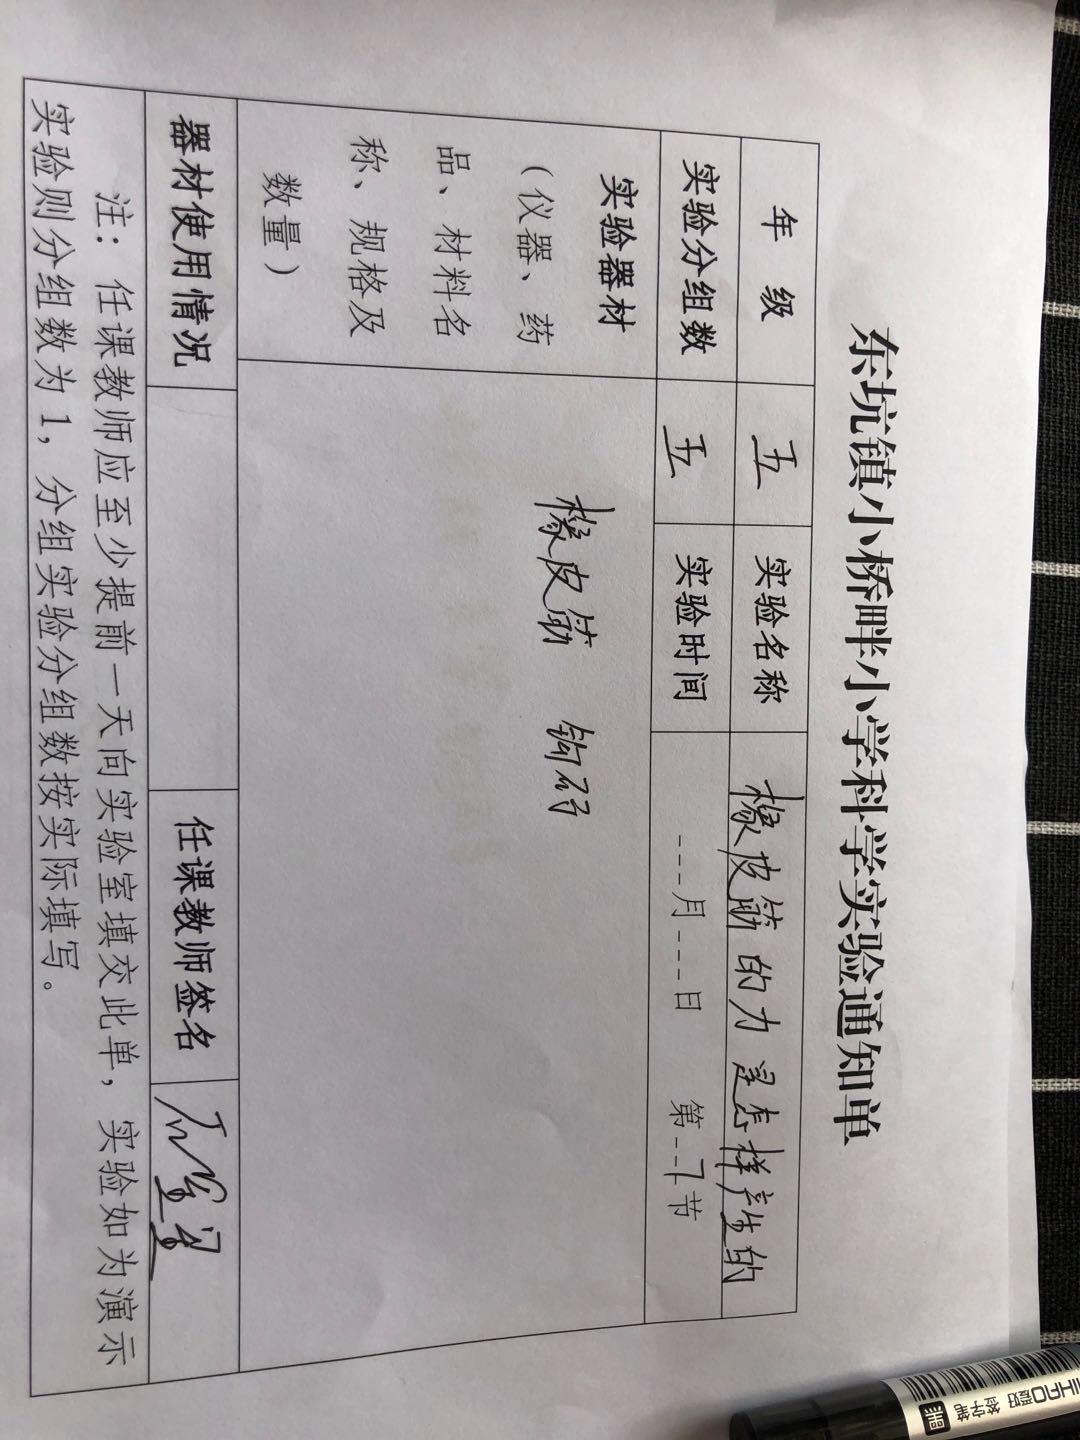 东坑镇小桥畔小学科学实验通知单
年 级 五 实验名称 橡皮筋的力是怎样产生的
实验分组数 五 实验时间 ---月---日 第--7节
实验器材
（仪器、药
品、材料名
称、规格及
数量）
橡皮筋 钩码
器材使用情况 任课教师签名
注：任课教师应至少提前一天向实验室填交此单，实验如为演示
实验则分组数为1，分组实验分组数按实际填写。
爱好 签字笔